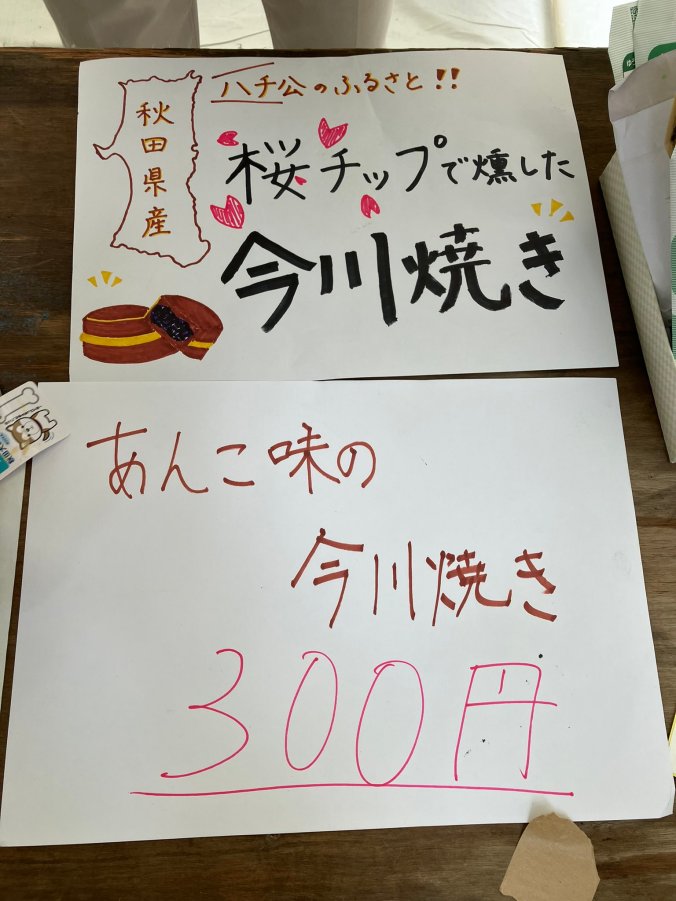 秋田県産
ハチ公のふるさと!!
桜チップで燻した
今川焼き
あんこ味の
今川焼き
300円